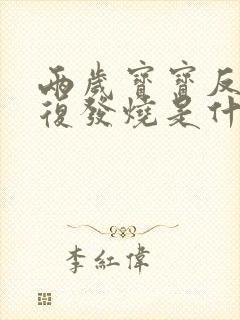 兩歲寶寶反
復發燒是什
李紅偉